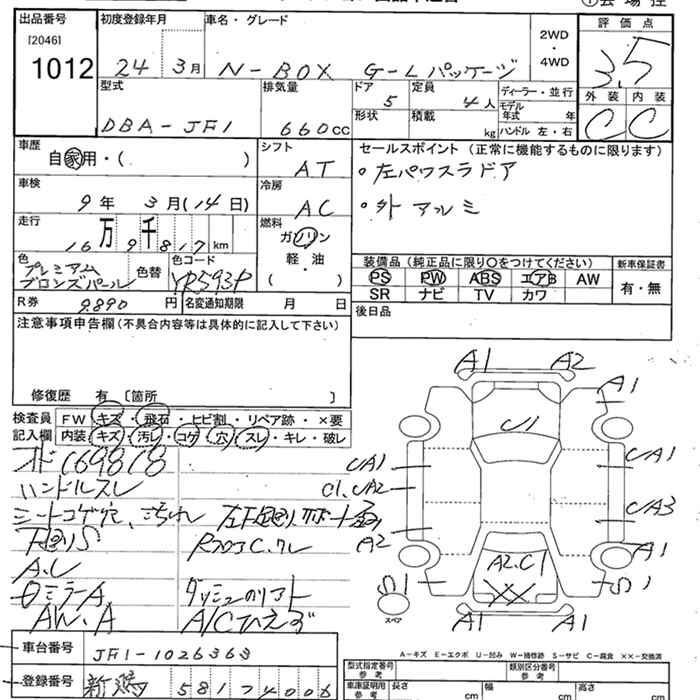 出品番号
[2046]
1012
初度登録年月
24年 3月
車名・グレード
N-BOX G-Lパッケージ
2WD
・
4WD
評価点
3.5
外装 内装
C C
型式
DBA-JF1
排気量
660cc
ドア
5
定員
4人
形状
積載
kg
ディーラー・並行
モデル年式 年
ハンドル 左・右
車歴
自家用・( )
シフト
AT
車検
9年 3月(14日)
冷房
AC
走行
16万9千817km
燃料
ガソリン
軽・油
( )
色
プレミアム
ブロンズパール
色替
色コード
YR593P
R券
9890円
名変通知期限 月 日
セールスポイント (正常に機能するものに限ります)
・左パワスラドア
・外アルミ
装備品 (純正品に限り○をつけてください)
PS PW ABS エアB AW
SR ナビ TV カワ
新車保証書
有・無
後日品
注意事項申告欄(不具合内容等は具体的に記入して下さい)
修復歴 有 〔箇所 〕
検査員 FW キズ・飛石・ヒビ割・リペア跡・×要
記入欄 内装 キズ・汚レ・コゲ・穴・スレ・キレ・破レ
ハンドルスレ
シートコゲ穴、汚れ
AW.A
A1 A2
A1
U1
UA1 UA1
C1,UA2
UA3
A2
A1
A2.C1
XX
S1 S1
A1 A1
スペア
A-キズ E-エクボ U-凹み W-補修跡 S-サビ C-腐食 ××-交換済
車台番号 JF1-1026363
登録番号 新潟 581 な 4006
型式指定番号
参考
類別区分番号
参考
車庫証明用
参考
長さ cm
幅 cm
高さ cm